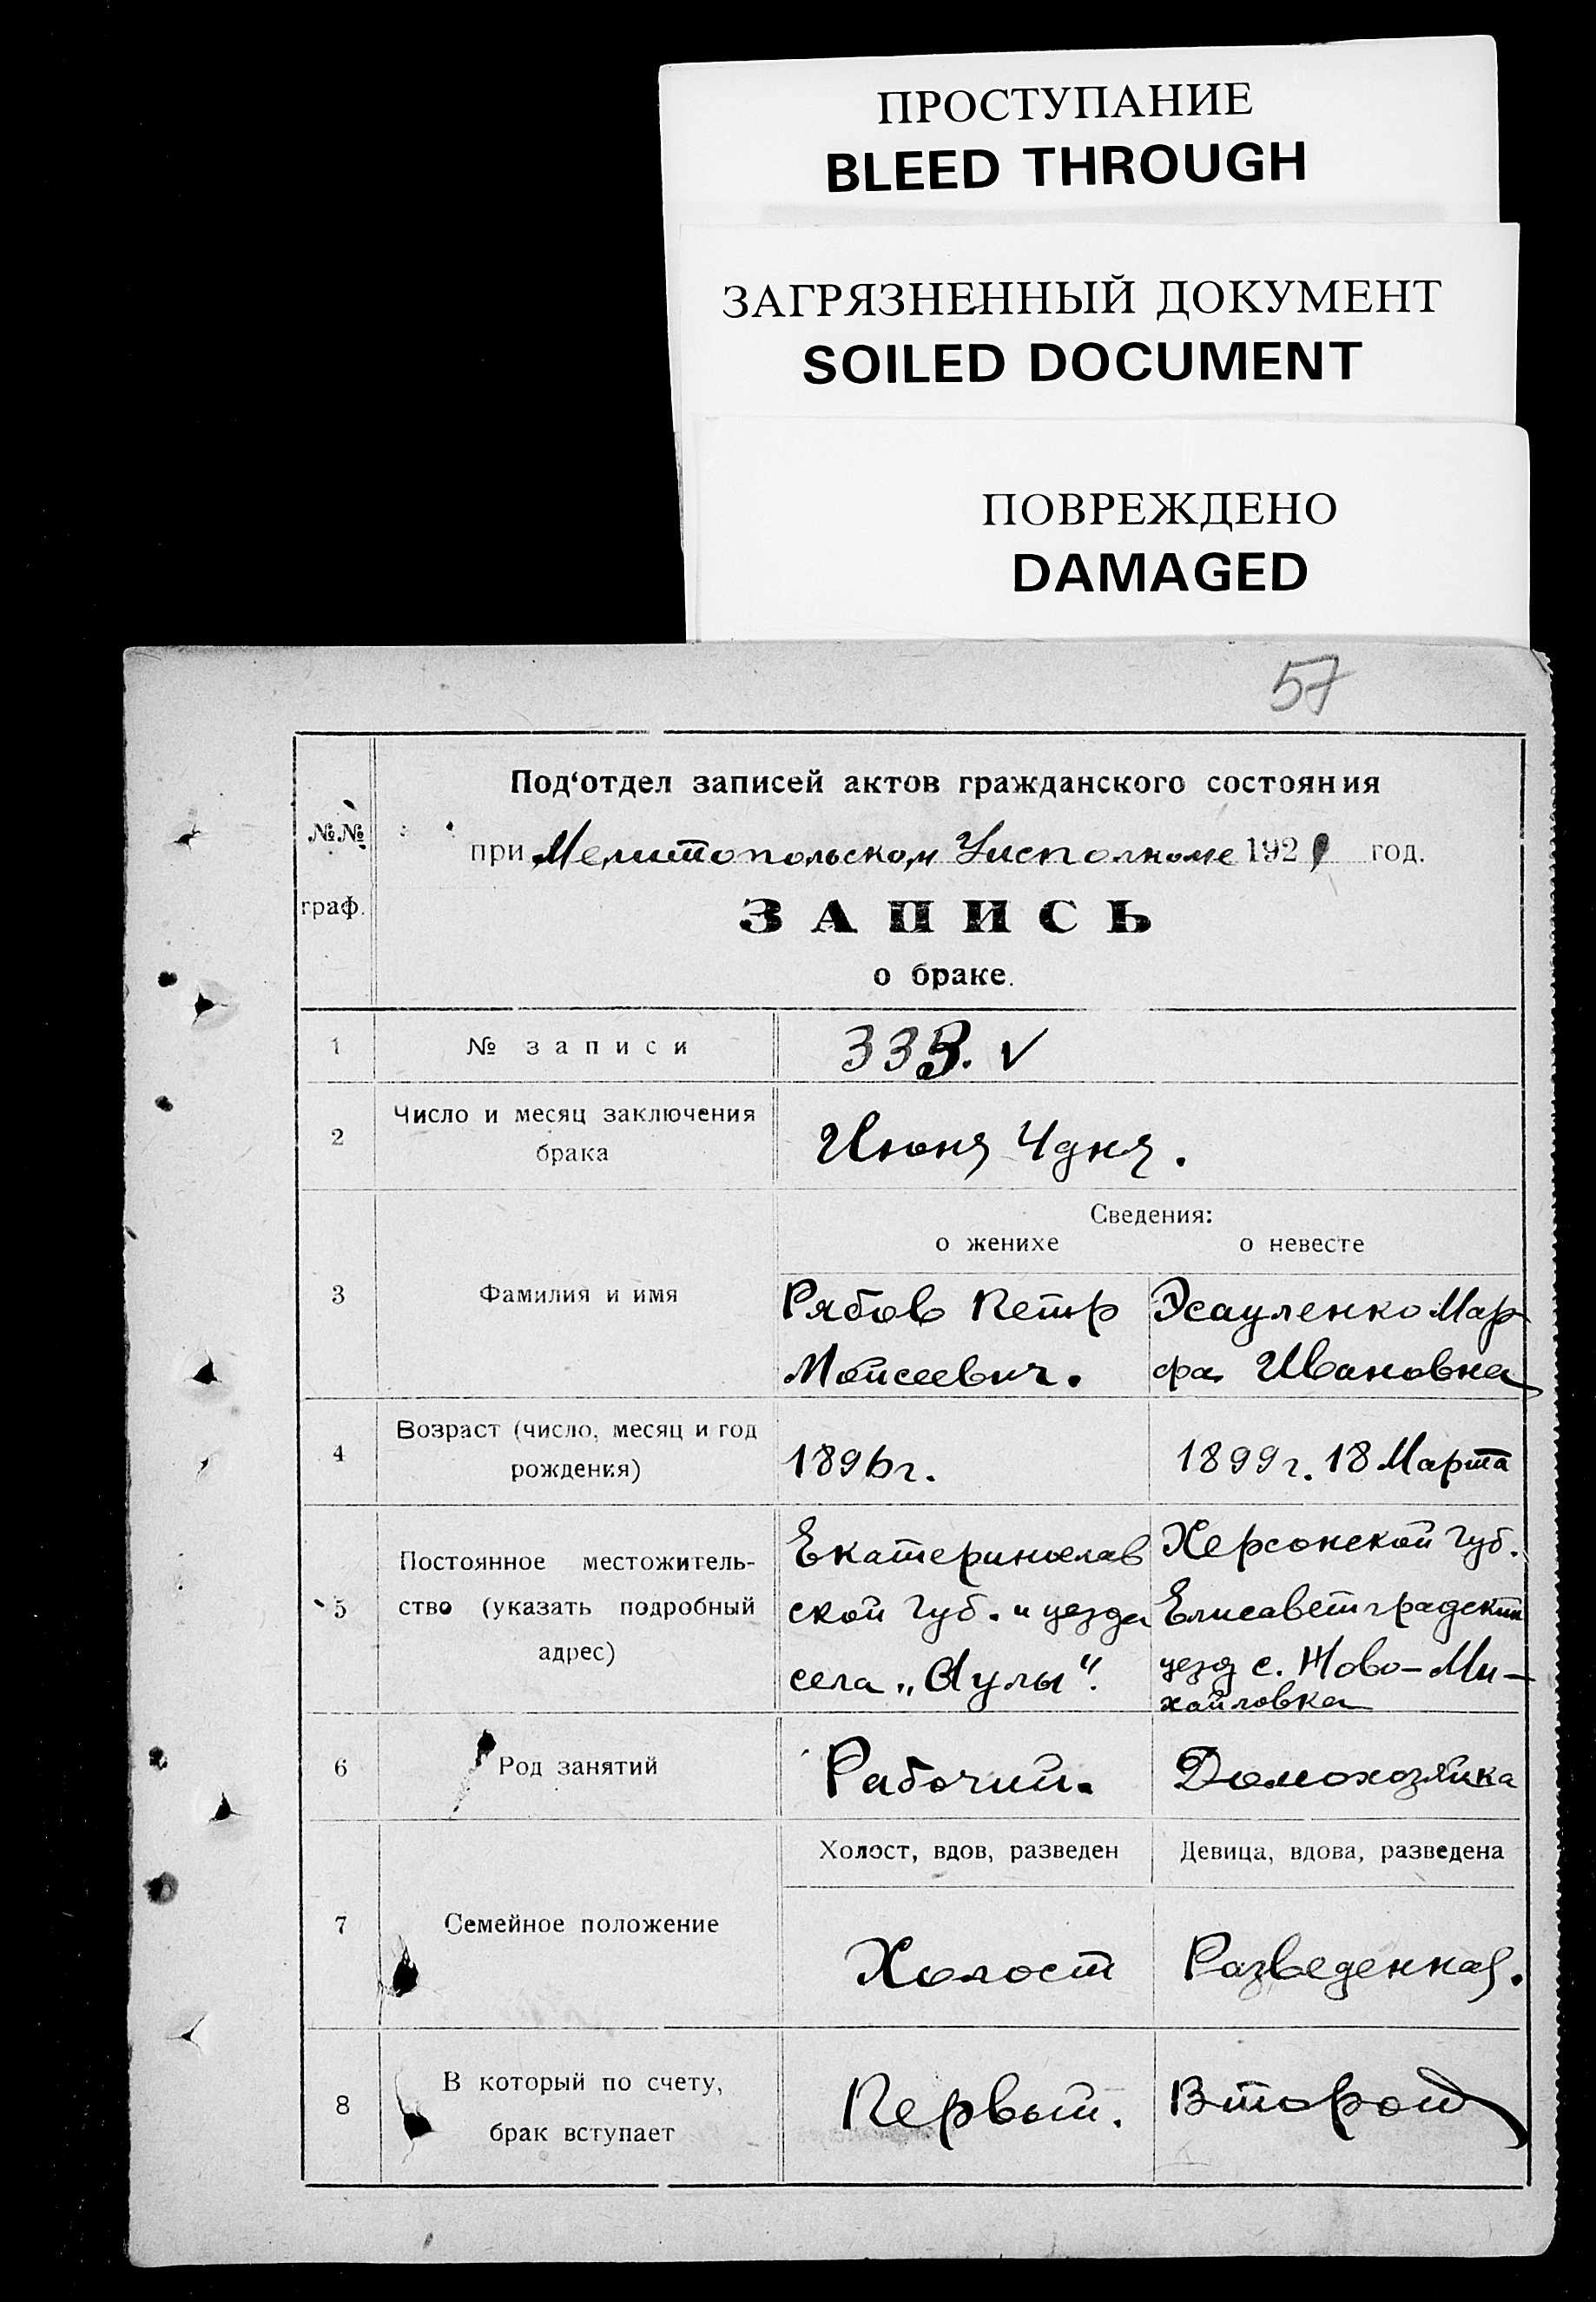 ПРОСТУПАНИЕ
BLEED THROUGH
ЗАГРЯЗНЕННЫЙ ДОКУМЕНТ
SOILED DOCUMENT
ПОВРЕЖДЕНО
DAMAGED
57
№№ граф.
Под‘отдел записей актов гражданского состояния
при Мелитопольском Уисполкоме 1921 год.
ЗАПИСЬ
о браке.
1 № записи 333. V
2 Число и месяц заключения
брака
Июня 4 дня.
Сведения:
о женихе о невесте
3 Фамилия и имя
Рябов Петр
Моисеевич.
Эсауленко Мар
фа Ивановна
4 Возраст (число, месяц и год
рождения)
1896 г.
1899 г. 18 Марта
5 Постоянное местожитель-
ство (указать подробный
адрес)
Екатеринослав
ской губ. и уезда
села „Аулы“.
Херсонской губ.
Елисаветградский
уезд с. Ново-Ми-
хайловка
6 Род занятий
Рабочий.
Домохозяйка
7 Семейное положение
Холост, вдов, разведен
Девица, вдова, разведена
Холост
Разведенная.
8 В который по счету,
брак вступает
Первый.
Второй